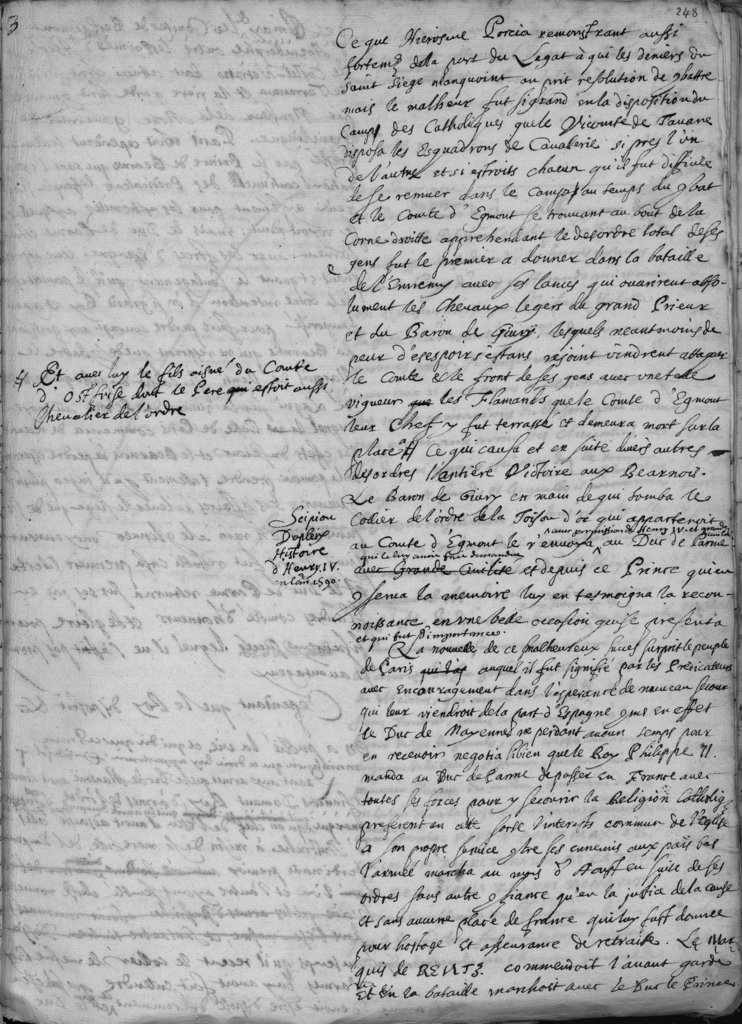 3
248
Ce que Hierosme Porcia remonstrant aussi
fortemt de la part du Legat à qui les deniers du
saint Siege manquoint on prit resolution de combattre
mais le malheur fut si grand en la disposition du
Camp des Catholiques que le Vicomte de Tavane
disposa les Esquadrons de Cavalerie si pres l'un
de l'autre et si estroits chacun qu'il fut difficile
de se remuer dans le camp au temps du combat
et le Comte d'Egmont se trouuant au bout de la
Corne droitte apprehendant le desordre total de ses
gens fut le premier a donner dans la bataille
de l'Ennemy avec ses lances qui ouurirent abso-
lument les Chevaux legers du grand Prieur
et du Baron de Giury, lesquels neantmoins de
peur d'esespoir s'estans rejoint vindrent attaquer
le Comte et le front de ses gens avec vne telle
vigueur que les Flamants que le Comte d'Egmont
leur Chef y fut terrassé et demeura mort sur la
place # Ce qui causa et en suite divers autres
desordres l'antiere Victoire aux Bearnois.
# Et avec luy le fils aisné du Comte
d'Ostfrise dont le Pere qui estoit aussi
Chevalier de l'ordre
Le Baron de Giury en main de qui tomba le
Collier de l'ordre de la Toison d'or qui appartenoit
au Comte d'Egmont le r'envoya au Duc de Parme
avec permission de Henry IV. et grande
qui le luy auoit faict demander
avec Grande Ciuilité et depuis ce Prince qui en
conserua la memoire luy en tesmoigna la recon-
noissance en vne belle occasion qui se presenta
et qui fut d'importance.
Scipion
Dupleix
Histoire
d'Henry IV.
en l'an 1590
La nouvelle de ce malheureux succes surprit le peuple
de Paris auquel il fut signifié par les Predicateurs
avec encouragement dans l'esperance de nouveau secour
qui leur viendroit de la part d'Espagne comme en effet
le Duc de Mayenne ne perdant aucun temps pour
en recevoir negotia si bien que le Roy Philippe II.
manda au Duc de Parme de passer en France avec
toutes ses forces pour y secourir la Religion Catholiq
preferent en cete sorte l'interest commun de l'Eglise
a son propre service contre ses ennemis aux païs bas
l'armée marcha au mois d'Aoust en suite de ses
ordres sans autre confiance qu'en la justice de la cause
et sans aucune place de france qui luy fust donnée
pour hostage et assurance de retraite. Le Mar
quis de RENTS. commendoit l'avant garde
et en la bataille marchoit avec le Duc le Prince